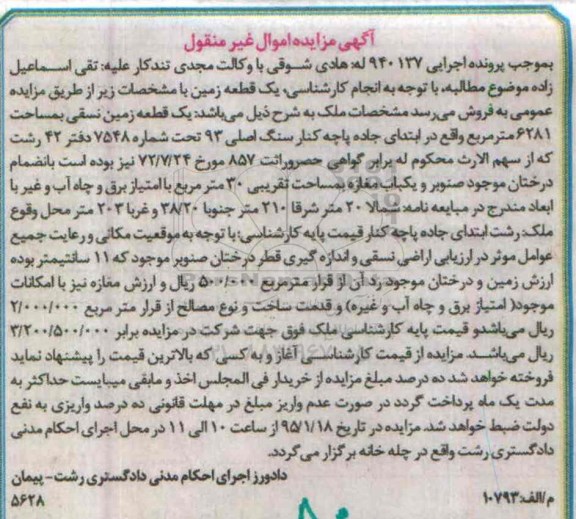 آگهی مزایده اموال غیر منقول
بموجب پرونده اجرایی ۱۳۷ ۹۴۰ له: هادی شوقی با وکالت مجدی تندکار علیه: تقی اسماعیل
زاده موضوع مطالبه، با توجه به انجام کارشناسی، یک قطعه زمین با مشخصات زیر از طریق مزایده
عمومی به فروش می رسد مشخصات ملک به شرح ذیل می‌باشد: یک قطعه زمین نسقی بمساحت
۶۲۸۱ مترمربع واقع در ابتدای جاده پاچه کنار سنگ اصلی ۹۳ تحت شماره ۷۵۴۸ دفتر ۴۲ رشت
که از سهم الارث محکوم له برابر گواهی حصروراثت ۸۵۷ مورخ ۷۲/۷/۲۴ نیز بوده است بانضمام
درختان موجود صنوبر و یکباب مغازه بمساحت تقریبی ۳۰ متر مربع با امتیاز برق و چاه آب و غیر با
ابعاد مندرج در مبایعه نامه: شمالا ۲۰ متر شرقا ۲۱۰ متر جنوبا ۳۸/۲۰ و غربا ۲۰۳ متر محل وقوع
ملک: رشت ابتدای جاده پاچه کنار قیمت پایه کارشناسی: با توجه به موقعیت مکانی و رعایت جمیع
عوامل موثر در ارزیابی اراضی نسقی و اندازه گیری قطر درختان صنوبر موجود که ۱۱ سانتیمتر بوده
ارزش زمین و درختان موجود رد آن از قرار مترمربع ۵۰۰/۰۰۰ ریال و ارزش مغازه نیز با امکانات
موجود( امتیاز برق و چاه آب و غیره) و قدمت ساخت و نوع مصالح از قرار متر مربع ۲/۰۰۰/۰۰۰
ریال می‌باشدو قیمت پایه کارشناسی ملک فوق جهت شرکت در مزایده برابر ۳/۲۰۰/۵۰۰/۰۰۰
ریال می‌باشد. مزایده از قیمت کارشناسی آغاز و به کسی که بالاترین قیمت را پیشنهاد نماید
فروخته خواهد شد ده درصد مبلغ مزایده از خریدار فی المجلس اخذ و مابقی میبایست حداکثر به
مدت یک ماه پرداخت گردد در صورت عدم واریز مبلغ در مهلت قانونی ده درصد واریزی به نفع
دولت ضبط خواهد شد. مزایده در تاریخ ۹۵/۱/۱۸ از ساعت ۱۰ الی ۱۱ در محل اجرای احکام مدنی
دادگستری رشت واقع در چله خانه برگزار می گردد.
دادورز اجرای احکام مدنی دادگستری رشت- پیمان
م/الف: ۱۰۷۹۳ ۵۶۲۸